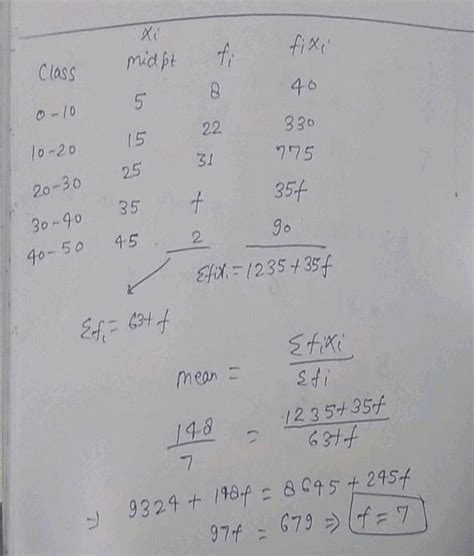 xi
Class midpt fi fixi
0-10 5 8 40
10-20 15 22 330
20-30 25 31 775
30-40 35 f 35f
40-50 45 2 90
Σfi = 63+f Σfixi = 1235+35f
mean = Σfixi / Σfi
148/7 = 1235+35f / 63+f
⇒ 9324 + 148f = 8645 + 245f
97f = 679 ⇒ f = 7